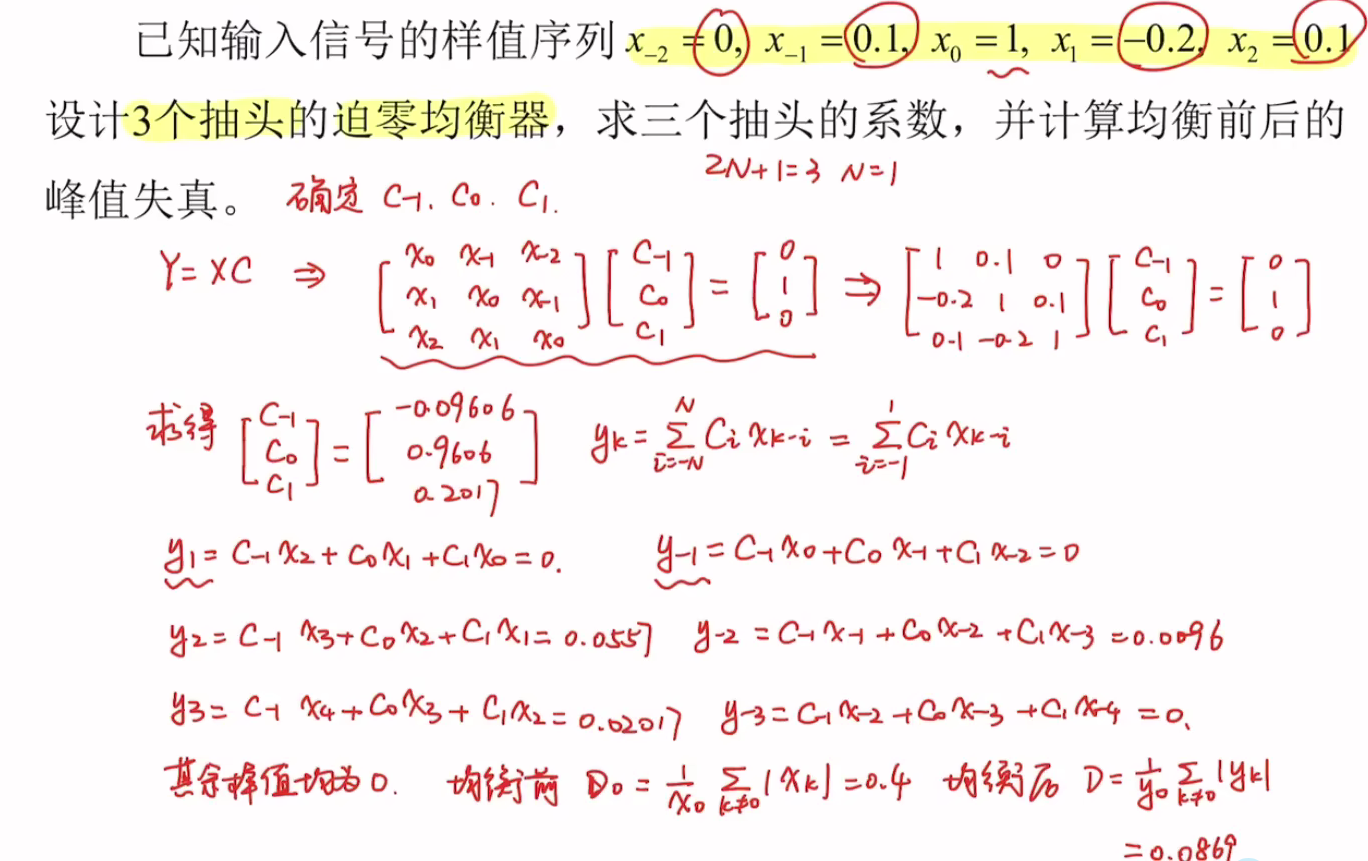 已知输入信号的样值序列 x₋₂ = 0, x₋₁ = 0.1, x₀ = 1, x₁ = −0.2, x₂ = 0.1
设计3个抽头的迫零均衡器，求三个抽头的系数，并计算均衡前后的
2N+1=3 N=1
峰值失真。 确定 C₋₁. C₀. C₁.
Y=XC ⇒ [x₀ x₋₁ x₋₂; x₁ x₀ x₋₁; x₂ x₁ x₀][C₋₁; C₀; C₁] = [0; 1; 0] ⇒ [1 0.1 0; -0.2 1 0.1; 0.1 -0.2 1][C₋₁; C₀; C₁] = [0; 1; 0]
求得 [C₋₁; C₀; C₁] = [-0.09606; 0.9606; 0.2017] yₖ = Σ_{i=-N}^{N} Cᵢ xₖ₋ᵢ = Σ_{i=-1}^{1} Cᵢ xₖ₋ᵢ
y₁ = C₋₁x₂ + C₀x₁ + C₁x₀ = 0. y₋₁ = C₋₁x₀ + C₀x₋₁ + C₁x₋₂ = 0
y₂ = C₋₁x₃ + C₀x₂ + C₁x₁ = 0.0557 y₋₂ = C₋₁x₋₁ + C₀x₋₂ + C₁x₋₃ = 0.0096
y₃ = C₋₁x₄ + C₀x₃ + C₁x₂ = 0.02017 y₋₃ = C₋₁x₋₂ + C₀x₋₃ + C₁x₋₄ = 0.
其余样值均为0. 均衡前 D₀ = 1/x₀ Σ_{k≠0} |xₖ| = 0.4 均衡后 D = 1/y₀ Σ_{k≠0} |yₖ|
= 0.0869